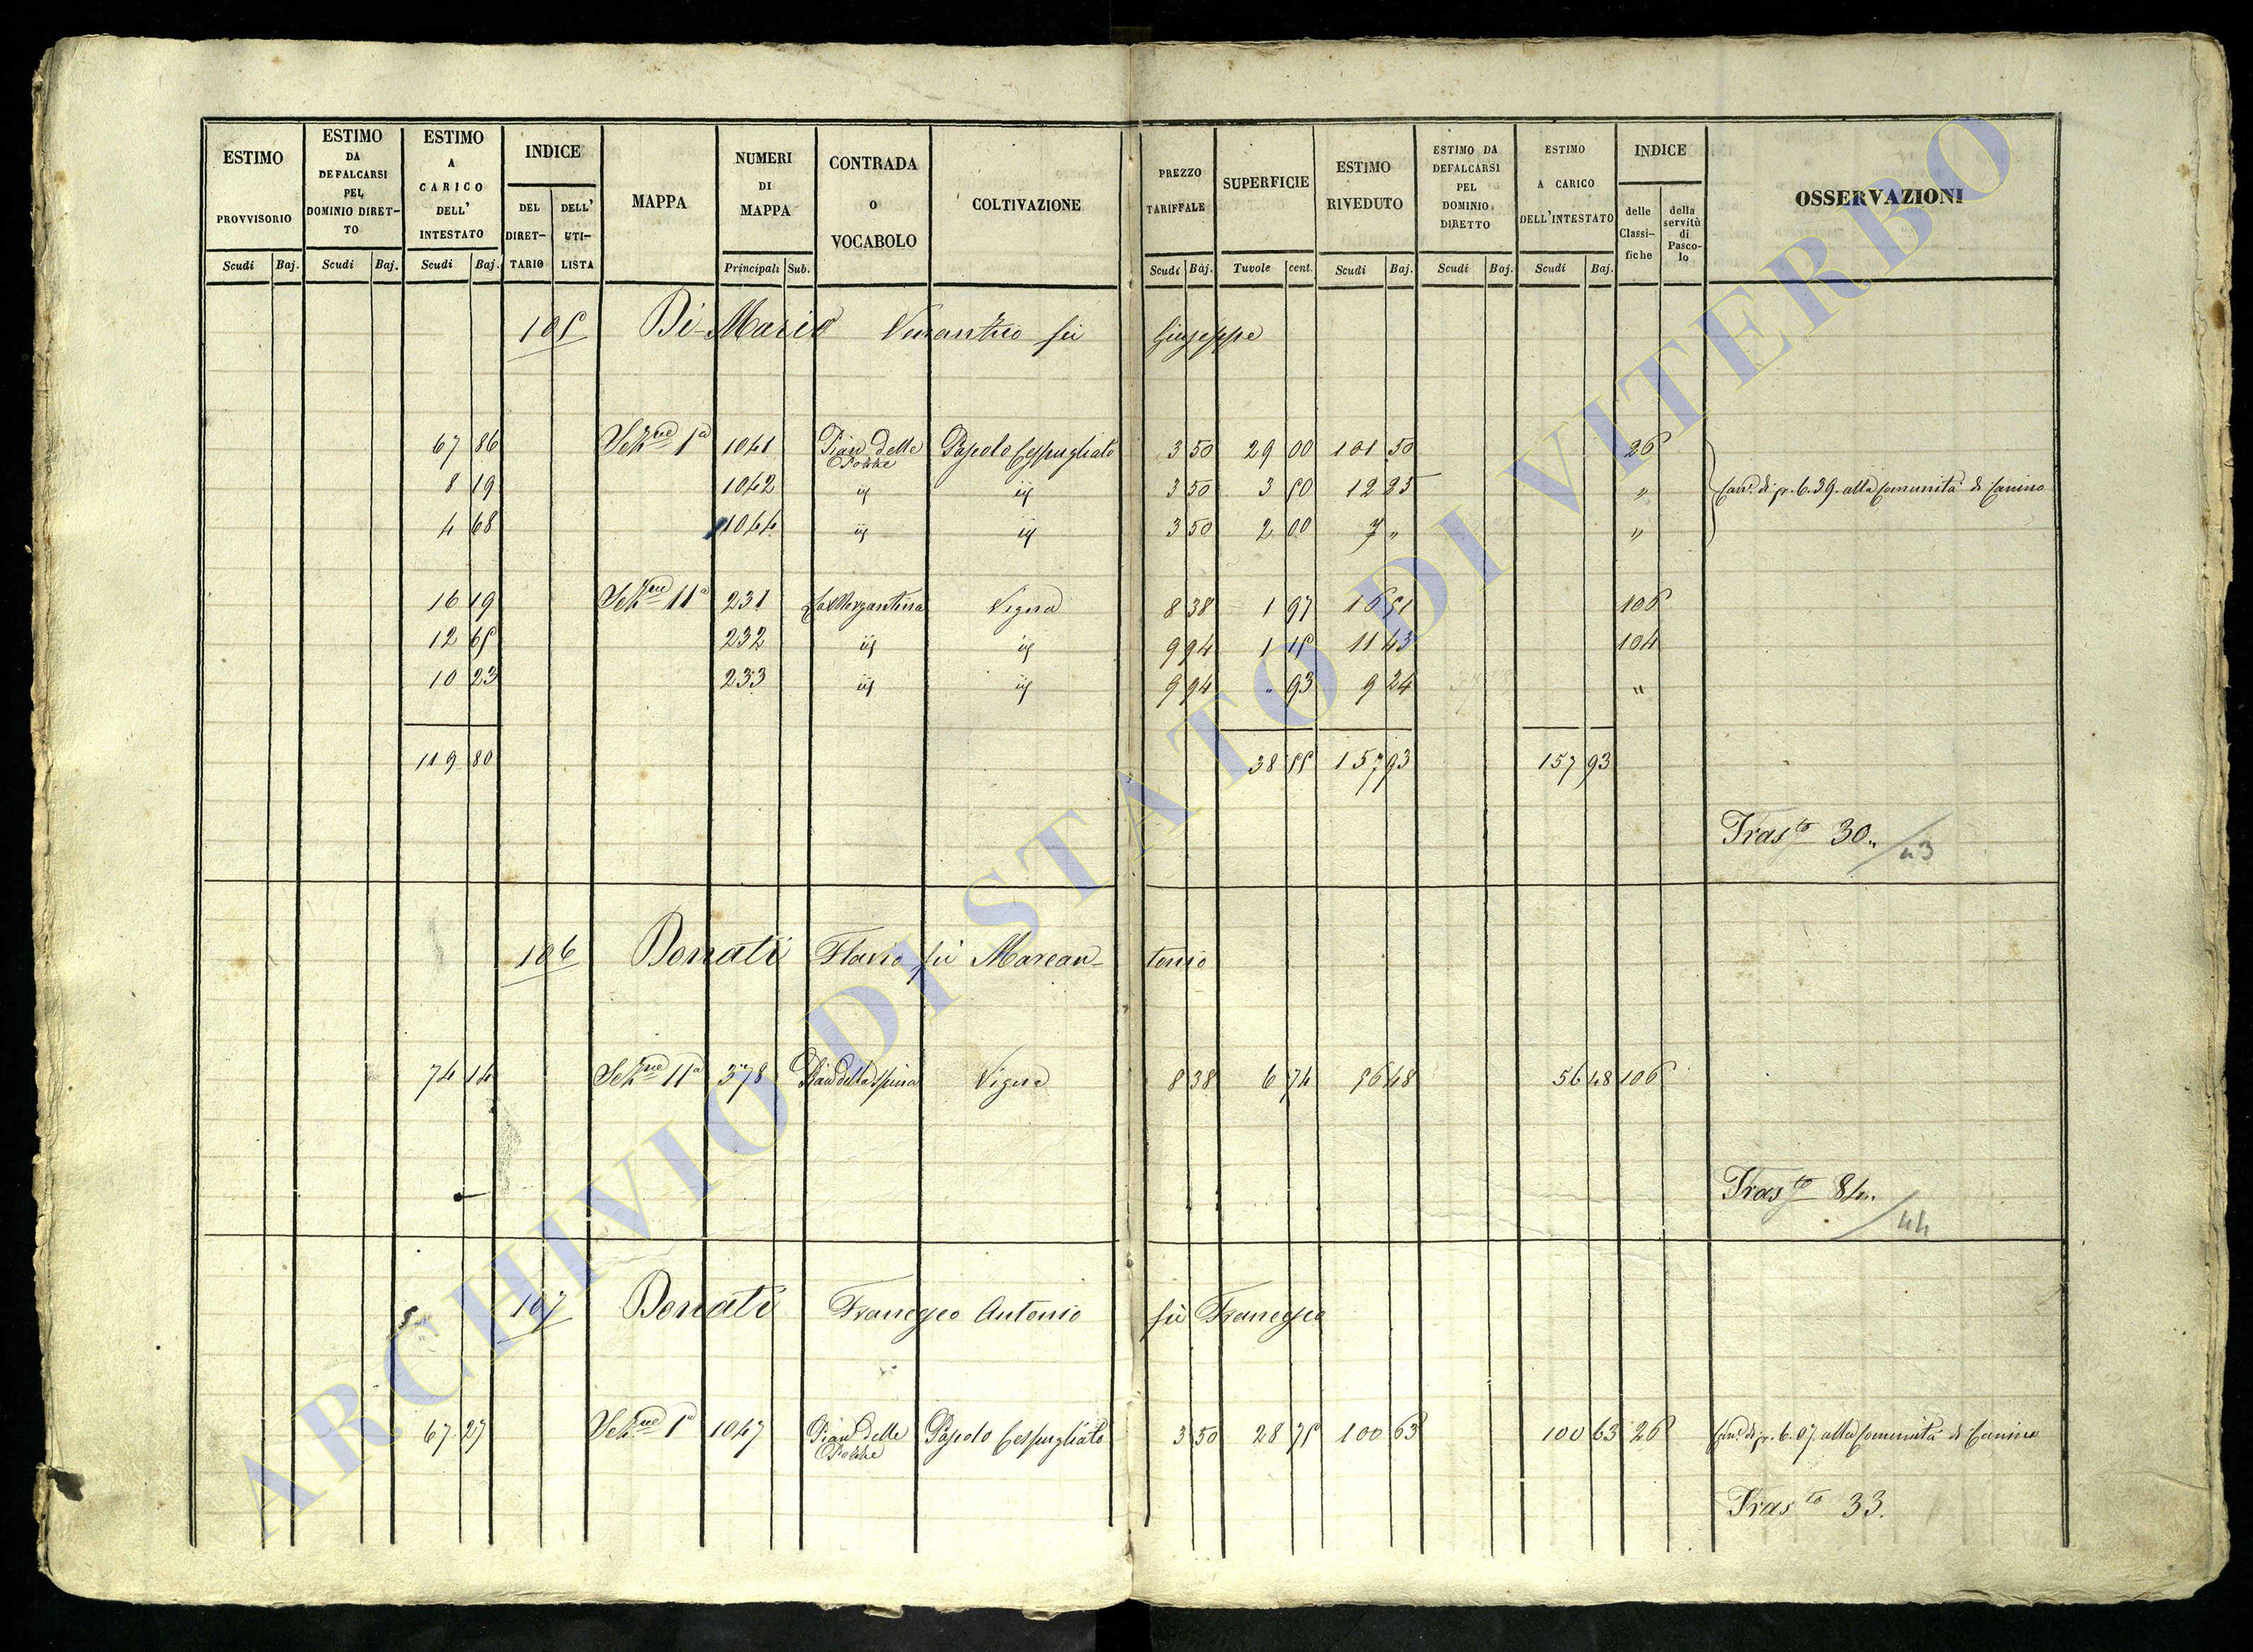 ESTIMO PROVVISORIO Scudi Baj.
ESTIMO DA DEFALCARSI PEL DOMINIO DIRET-TO Scudi Baj.
ESTIMO A CARICO DELL' INTESTATO Scudi Baj.
INDICE DEL DIRET-TARIO DELL' UTI-LISTA
MAPPA
NUMERI DI MAPPA Principali Sub.
CONTRADA o VOCABOLO
COLTIVAZIONE
PREZZO TARIFFALE Scudi Baj.
SUPERFICIE Tuvole cent.
ESTIMO RIVEDUTO Scudi Baj.
ESTIMO DA DEFALCARSI PEL DOMINIO DIRETTO Scudi Baj.
ESTIMO A CARICO DELL'INTESTATO Scudi Baj.
INDICE delle Classi-fiche della servitù di Pasco-lo
OSSERVAZIONI
105 Di Mario Venanzio fu Giuseppe
67 86 Sezne 1a 1041 Pian delle Pascolo Cespugliato 3 50 29 00 101 50 26
8 19 1042 id id 3 50 3 50 12 25 " Cane di sc. 6.39. alla Comunità di Canino
4 68 1044 id id 3 50 2 00 7 " "
16 19 Sezne 11a 231 Vigna 8 38 1 97 16 51 106
12 65 232 id id 9 94 1 15 11 43 104
10 23 233 id id 9 94 " 93 9 24 "
119 80 38 55 157 93 157 93
Trasto 30.. 43
106 Donati Flavio fu Marcan-tonio
74 14 Sezne 11a 378 Pian della Spina Vigna 8 38 6 74 56 48 56 48 106
Trasto 84.. 44
107 Donati Francesco Antonio fu Francesco
67 27 Sezne 1a 1047 Pian delle Pascolo Cespugliato 3 50 28 75 100 63 100 63 26 Cane di sc. 6.07. alla Comunità di Canino
Trasto 33.
ARCHIVIO DI STATO DI VITERBO